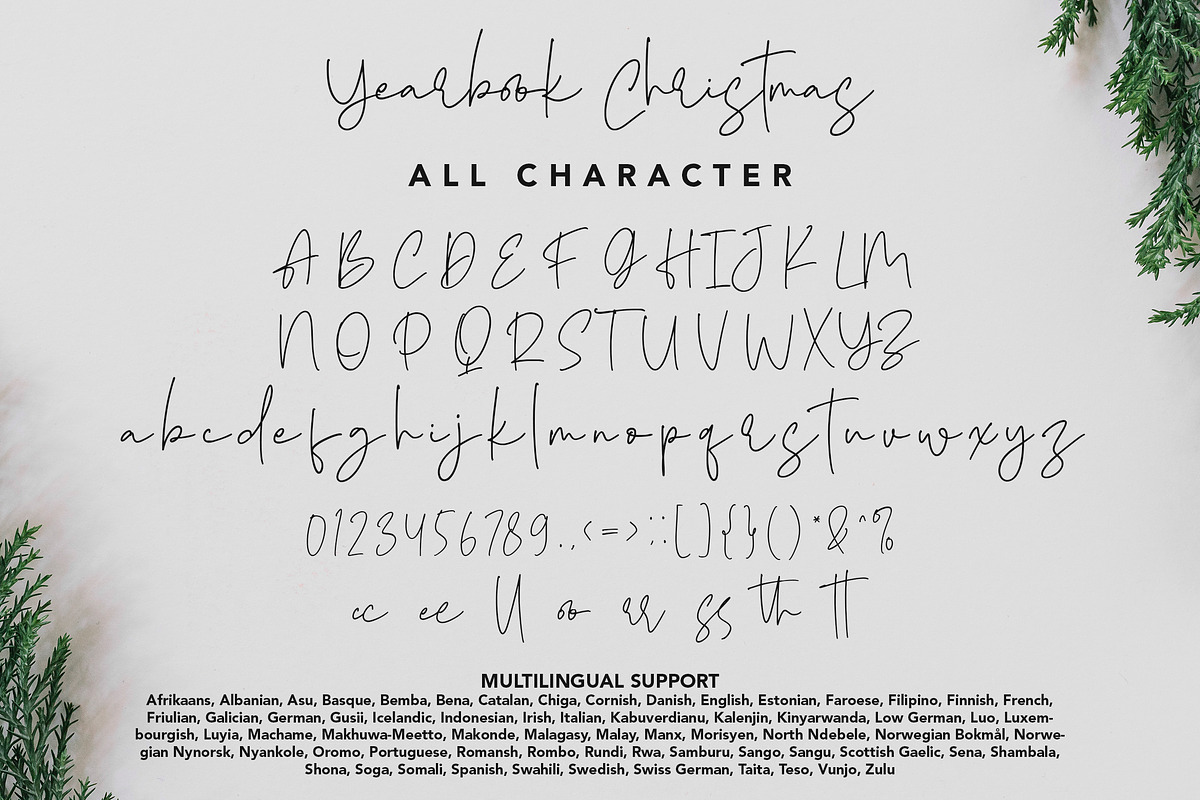 Yearbook Christmas
ALL CHARACTER
A B C D E F G H I J K L M
N O P Q R S T U V W X Y Z
a b c d e f g h i j k l m n o p q r s t u v w x y z
0123456789.,<=>;:[]{}()*&^%
cc ee ll oo rr ss th tt
MULTILINGUAL SUPPORT
Afrikaans, Albanian, Asu, Basque, Bemba, Bena, Catalan, Chiga, Cornish, Danish, English, Estonian, Faroese, Filipino, Finnish, French,
Friulian, Galician, German, Gusii, Icelandic, Indonesian, Irish, Italian, Kabuverdianu, Kalenjin, Kinyarwanda, Low German, Luo, Luxem-
bourgish, Luyia, Machame, Makhuwa-Meetto, Makonde, Malagasy, Malay, Manx, Morisyen, North Ndebele, Norwegian Bokmål, Norwe-
gian Nynorsk, Nyankole, Oromo, Portuguese, Romansh, Rombo, Rundi, Rwa, Samburu, Sango, Sangu, Scottish Gaelic, Sena, Shambala,
Shona, Soga, Somali, Spanish, Swahili, Swedish, Swiss German, Taita, Teso, Vunjo, Zulu